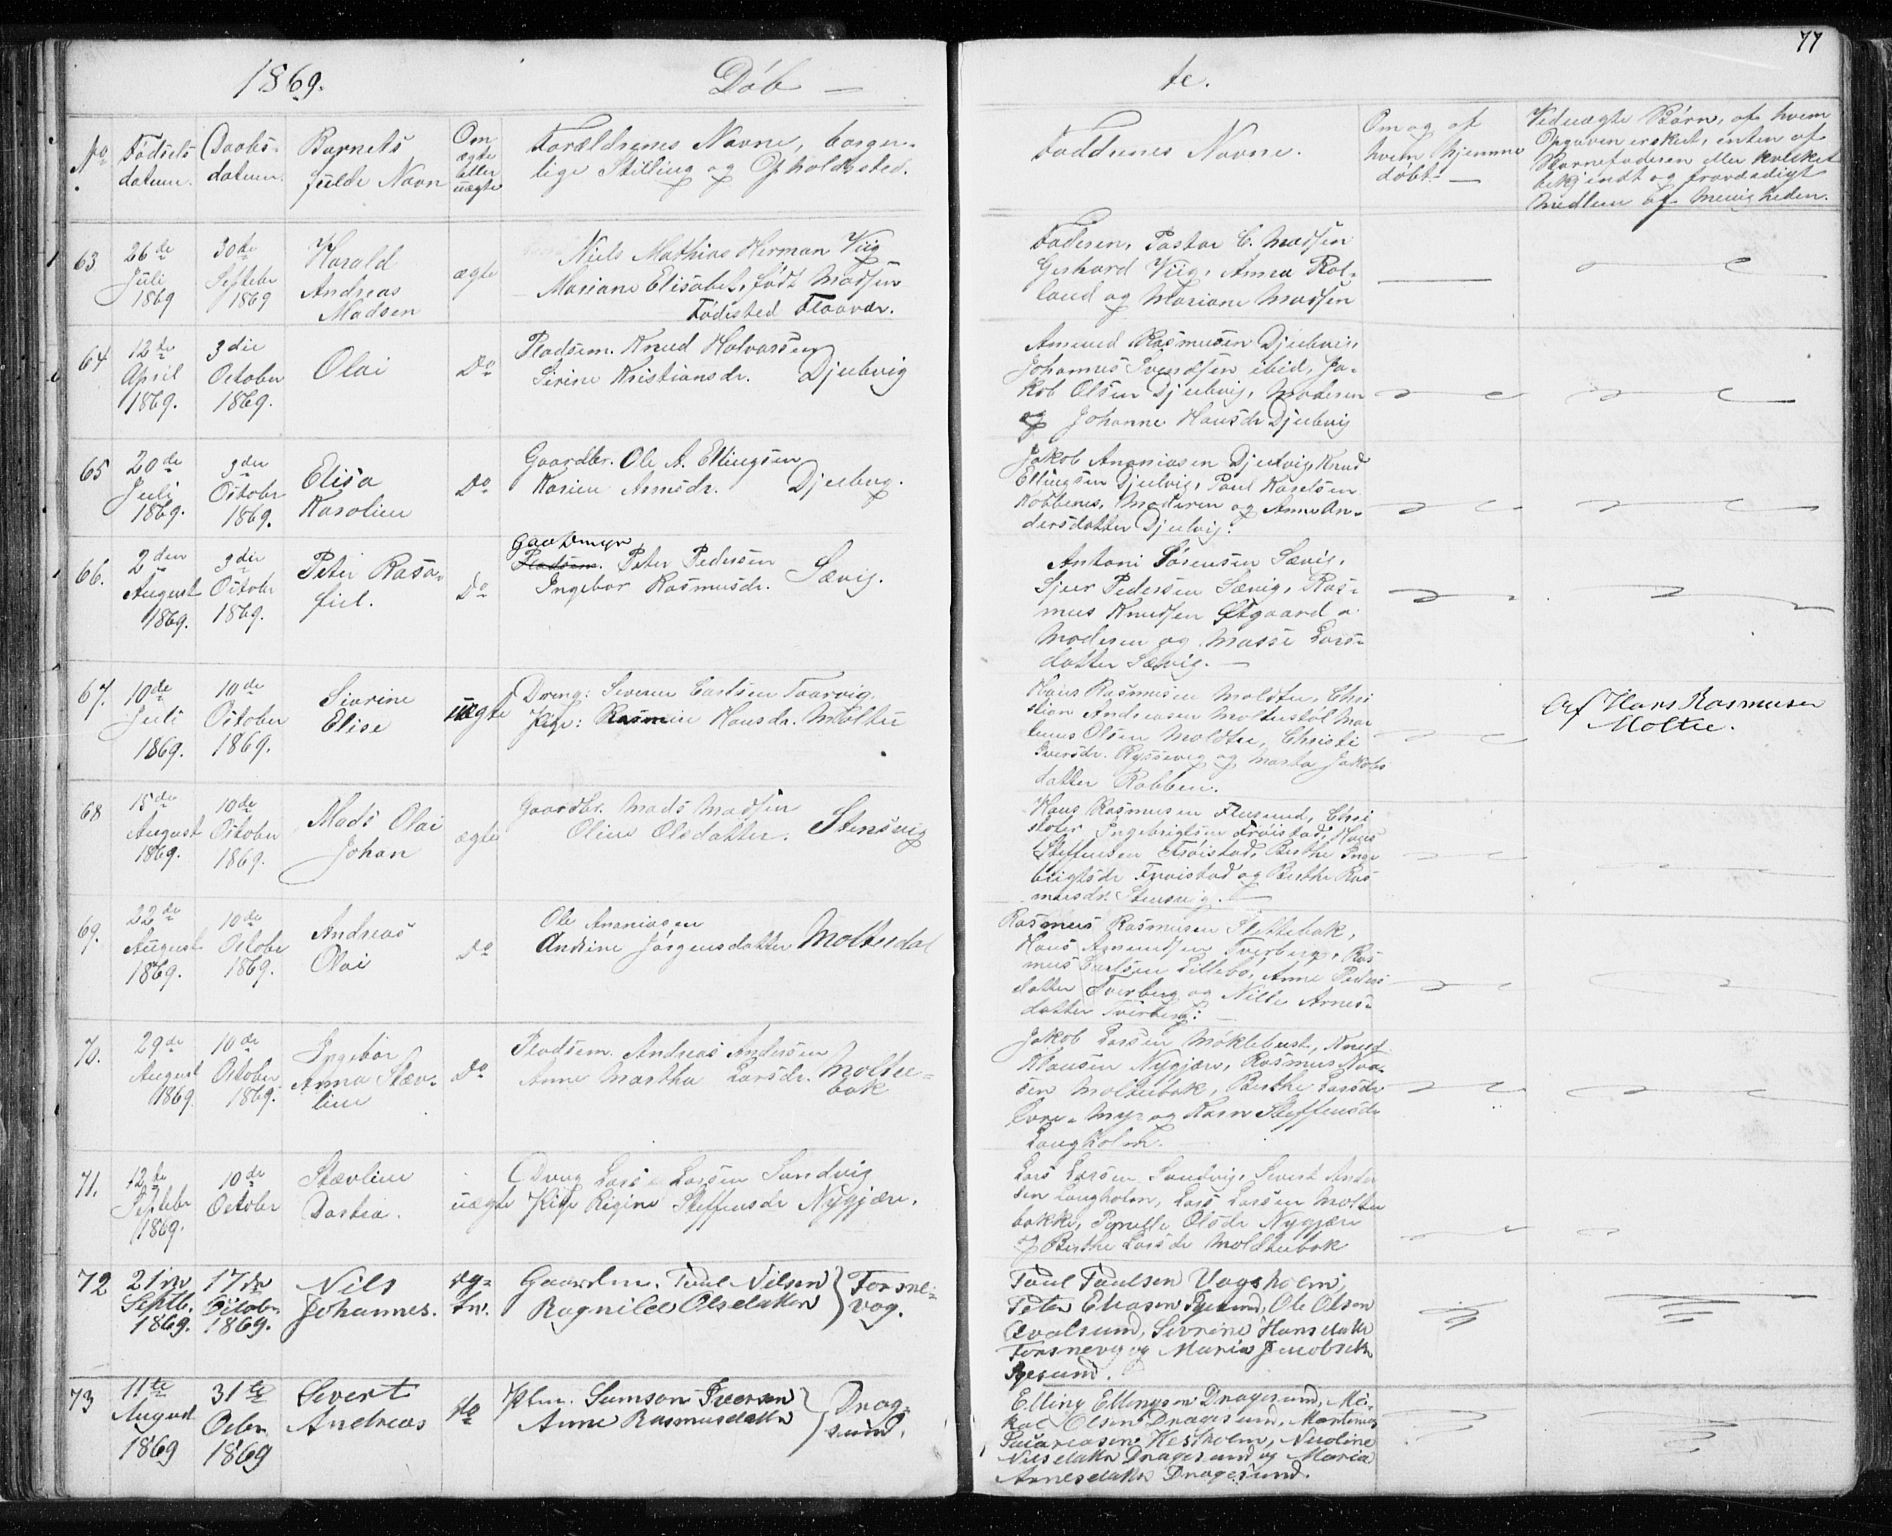 1869. Døb — te. 77
No. Fødsels datum. Daabs datum. Barnets fulde Navn Om ægte eller uægte Forældrenes Navne, borger-
lige Stilling og Opholdssted.
Faddrenes Navne.
Om og af
hvem hjemme
døbt. —
Ved uægte Børn, af hvem
Opgaven er skeet, enten af
Barnefaderen eller hvilket
bekjendt og troværdigt
Medlem af Menigheden.
63 26de Juli 1869 30de Septebr 1869 Harald Andreas Madsen ægte
Niels Mathias Herman Viig
Mariane Elisabet, født Madsen
Fødested Flaavær.
Faderen, Pastor C. Madsen
Gerhard Viig, Anna Rol-
land og Mariane Madsen
64 12te April 1869. 3die October 1869. Olai Do
Pladsm. Knud Halvorsen
Sirine Kristiansdr. Djubvig
Amund Rasmusen Djubvig,
Johannes Svendsen ibid, Ja-
kob Olsen Djubvig, Moderen
og Johanne Hansdr Djubvig
65 20de Juli 1869. 3die October 1869. Elisa Karoline Do
Gaardbr. Ole A. Ellingsen
Karine Arnsdr. Djubvig.
Jakob Ananiasen Djubvig, Knud
Ellingsen Djubvig, Paul
Moderen og Anne An-
dersdatter Djubvig.
66. 2den August 1869. 3die October 1869. Peter Rasa-
fiel. Do
Gaardmyr
Pladsm. Peter Pedersen
Ingebor Rasmusdr. Sævig.
Antoni Sørensen Sævig,
Sjur Pedersen Sævig, Ras-
mus Knudsen Østgaard
Moderen og Masse Lars-
datter Sævig. —
67. 10de Juli 1869. 10de October 1869. Sivrine Elise uægte
Dreng: Severin Carlsen Taarvig.
Pige: Rasmine Hansdr. Moltu
Hans Rasmusen Moldtu, Chri
stian Andreasen Moltustøl Mar
tinus Olsen Moldtu, Christi
Iversdr. og Marta Jakobs
datter Robben.
Af Hans Rasmusen
Moltu.
68 15de August 1869. 10de October 1869. Mads Olai Johan ægte
Gaardbr. Mads Madsen
Oline Olsdatter. Stensvig
Hans Rasmusen Flusund, Chri
stofer Ingebrigtsen Frøistad, Hans
Steffensen Frøistad, Berthe Inge
brigtsdr Frøistad og Berthe Ras
musdr. Stensvig.
69. 22de August 1869. 10de October 1869. Andreas Olai Do
Ole Ananiasen
Andrine Jørgensdatter Moltudal
Rasmus Rasmusen Slettebak,
Hans Amundsen Tverberg, Ras
mus Carlsen Lillebø, Anne Peders
datter Tverberg og Nille Arnes-
datter Tverberg. —
70. 29de August 1869. 10de October 1869. Ingebor Anna Stæv-
line Do
Pladsm. Andreas Andersen
Anne Martha Larsdr. Moltu-
bak
Jakob Larsen Møklebust, Knud
Klausen Nygjær, Rasmus
sen Moltubak, Berthe Larsdr
Øvre-Myr og Karn Steffensdr
Langholm.
71. 12te Septebr 1869. 10de October Stævline Dartea. uægte
Dreng Lars Larsen Sandvig
Pige Rigine Steffensdr Nygjær.
Lars Larsen Sandvig, Severt Ander
sen Langholm, Lars Larsen Moltu
bakke, Pernelle Olsdr Nygjær
og Berthe Larsdr Moldtubak
72 21de Septb. 1869. 17de October 1869. Nils Johannes. æg-
te.
Gaardm. Paul Nilsen
Ragnild Olsdatter } Torsne-
vag.
Paul Paulsen Vagsholm,
Peter Eliasen Igesund, Ole Olsen
Qvalsund, Sevrine Hansdatter
Torsnevg og Maria Jacobsdtr
Igesund.
73 11te August 1869 31te Octbr 1869 Severt Andreas do
Plm. Samson Iversen
Anne Rasmusdatter } Drag-
sund.
Elling Ellingsen Dragesund, Mi-
kal Olsen Dragesund, Martinus
Sacariasen Hestholm, Nicoline
Nilsdatter Dragesund og Maria
Arnesdatter Dragesund.